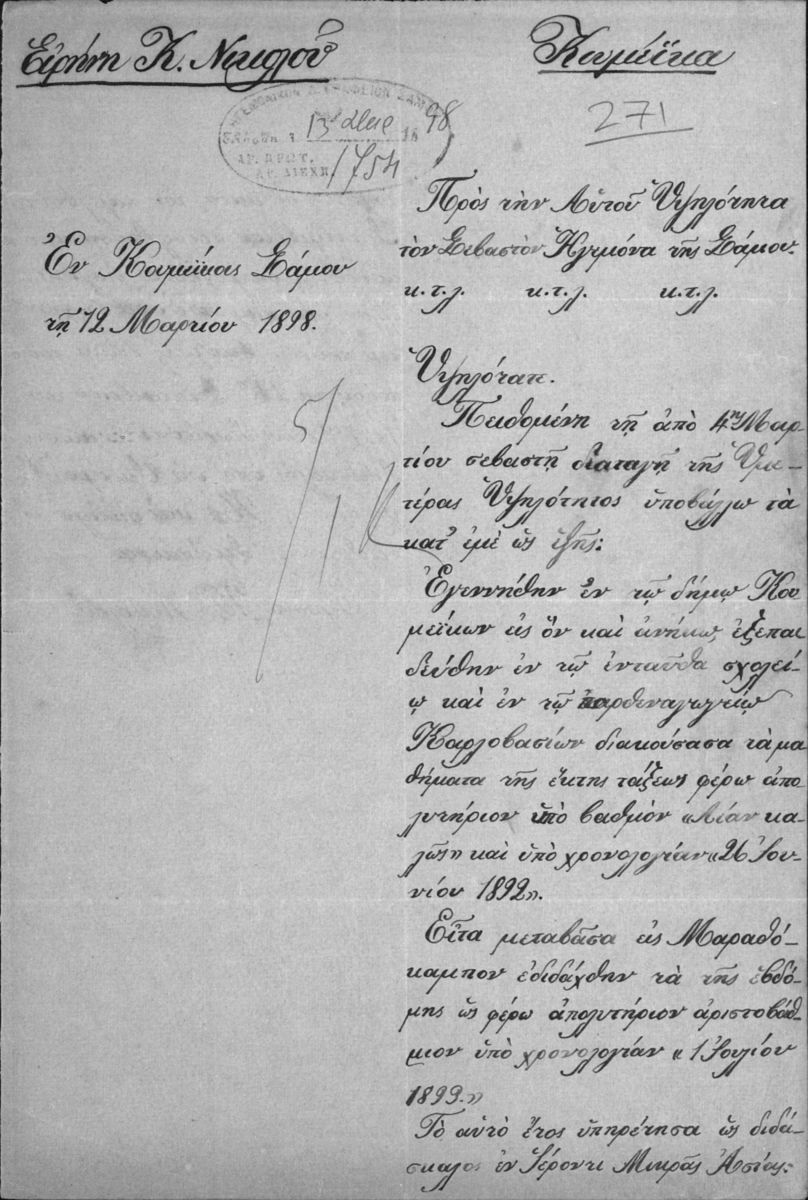 Εἰρήνη Κ. Νικολοῦ
Κουμέϊκα
ΗΓΕΜΟΝΙΚΟΝ ΓΡΑΦΕΙΟΝ ΣΑΜΟΥ
13 1898
ΑΡ. ΠΡΩΤ.
ΑΡ. ΔΙΕΚΠ. 1754
271
Ἐν Κουμεΐκοις Σάμου
τῇ 12 Μαρτίου 1898.
Πρὸς τὴν Αὐτοῦ Ὑψηλότητα
τὸν Σεβαστὸν Ἡγεμόνα τῆς Σάμου.
κ.τ.λ. κ.τ.λ. κ.τ.λ.
Ὑψηλότατε.
Πειθομένη τῇ ἀπὸ 4ης Μαρ-
τίου σεβαστῇ διαταγῇ τῆς Ὑμε-
τέρας Ὑψηλότητος ὑποβάλλω τὰ
κατ' ἐμὲ ὡς ἑξῆς:
Ἐγεννήθην ἐν τῷ δήμῳ Κου
μεΐκων εἰς ὅν καὶ ἀνήκω, ἐξεπαι
δεύθην ἐν τῷ ἐνταῦθα σχολεί-
ῳ καὶ ἐν τῷ παρθεναγωγείῳ
Καρλοβασίων διακούσασα τὰ μα
θήματα τῆς ἕκτης τάξεως φέρω ἀπο
λυτήριον ὑπὸ βαθμὸν «Λίαν κα-
λῶς» καὶ ὑπὸ χρονολογίαν «26 Ἰου-
νίου 1892».
Εἶτα μεταβᾶσα εἰς Μαραθό-
καμπον ἐδιδάχθην τὰ τῆς ἑβδό-
μης ὡς φέρω ἀπολυτήριον ἀριστοβάθ
μιον ὑπὸ χρονολογίαν «1 Ἰουλίου
1893.»
Τὸ αὐτὸ ἔτος ὑπηρέτησα ὡς διδά-
σκαλος ἐν Γέροντι Μικρᾶς Ἀσίας: